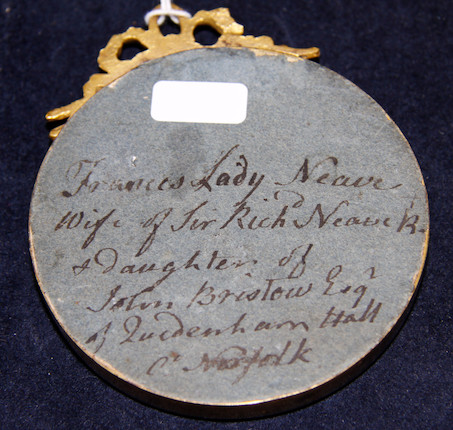 Frances Lady Neave
Wife of Sir Richd Neave Bt
& daughter of
John Bristow Esqr
of Quedenham Hall
Co Norfolk